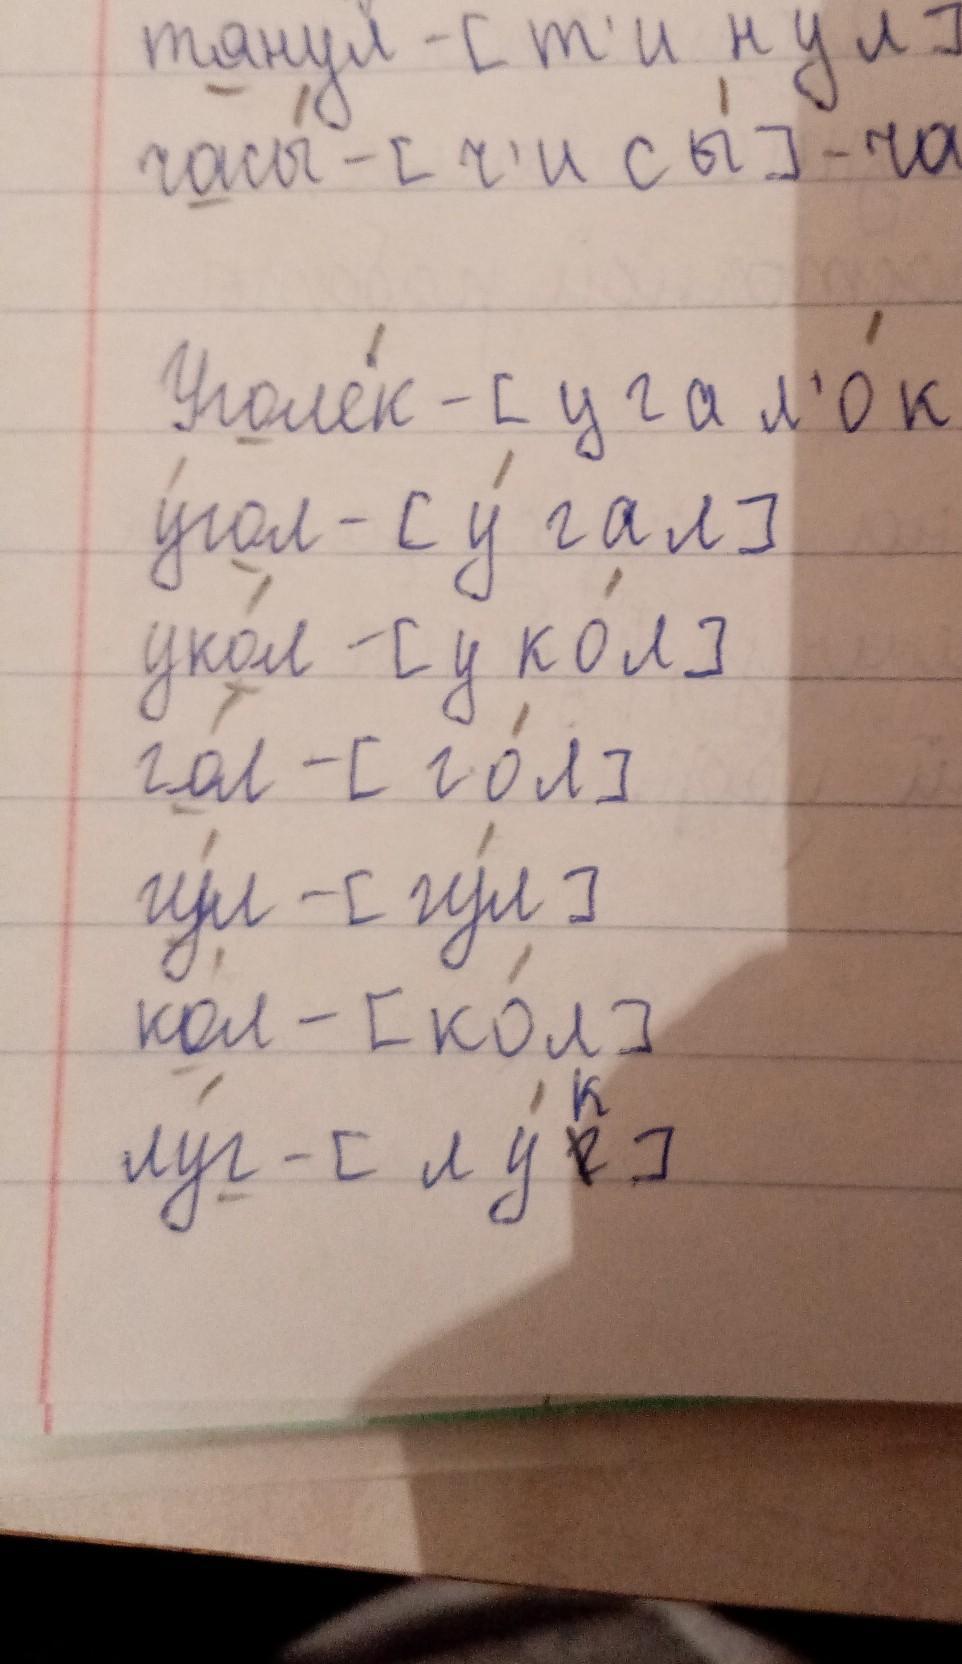 тянул - [ т' и н у л ]
часы́ - [ ч' и с ы́ ] - ча
Уголёк - [ у г а л' о́ к
у́гол - [ у́ г а л ]
уко́л - [ у к о́ л ]
го́л - [ г о́ л ]
гу́л - [ г у́ л ]
ко́л - [ к о́ л ]
лу́г - [ л у́ к ]